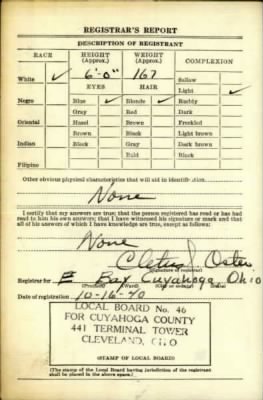 REGISTRAR'S REPORT
DESCRIPTION OF REGISTRANT
RACE HEIGHT (Approx.) WEIGHT (Approx.) COMPLEXION
White ✓ 6'-0" 167 Sallow
EYES HAIR Light ✓
Negro Blue ✓ Blonde ✓ Ruddy
Gray Red Dark
Oriental Hazel Brown Freckled
Brown Black Light brown
Indian Black Gray Dark brown
Bald Black
Filipino
Other obvious physical characteristics that will aid in identification
None
I certify that my answers are true; that the person registered has read or has had
read to him his own answers; that I have witnessed his signature or mark and that
all of his answers of which I have knowledge are true, except as follows:
None
(Signature of registrar)
Registrar for E Bay Cuyahoga Ohio
(Precinct) (Ward) (City or county) (State)
Date of registration 10-16-40
LOCAL BOARD No. 46
FOR CUYAHOGA COUNTY
441 TERMINAL TOWER
CLEVELAND, OHIO
(STAMP OF LOCAL BOARD)
(The stamp of the Local Board having jurisdiction of the registrant
shall be placed in the above space.)